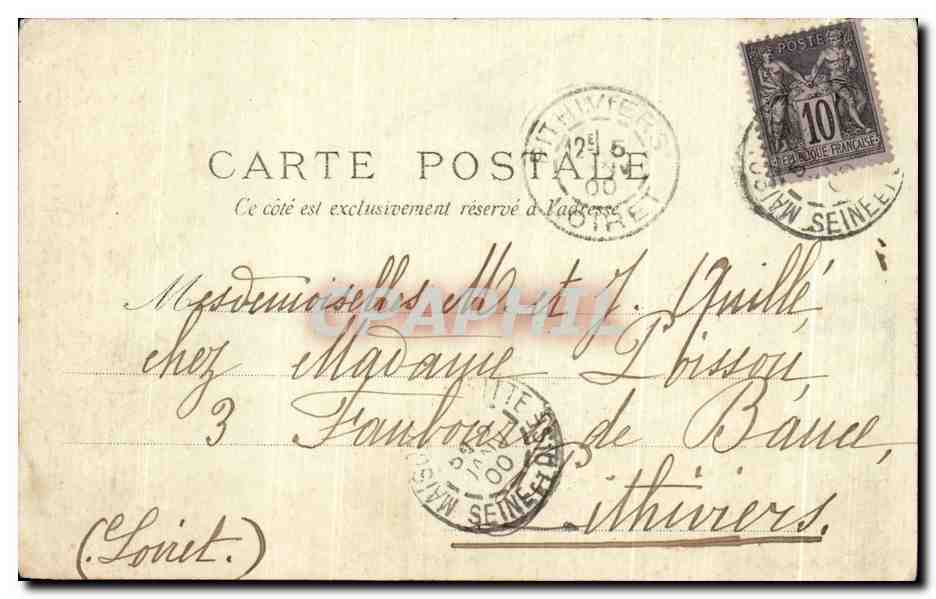 POSTE
10
REPUBLIQUE FRANÇAISE
PITHIVIERS
12E 5
JANV
00
LOIRET
CARTE POSTALE
Ce côté est exclusivement réservé à l'adresse
SEINE ET
Mesdemoiselles M et J. Quillé
CPAPHIL
chez Madame Poisson,
3 Faubourg de Bauce,
MAISONS LAFFITTE
JANV
00
SEINE ET OISE
Pithiviers.
(Loiret.)